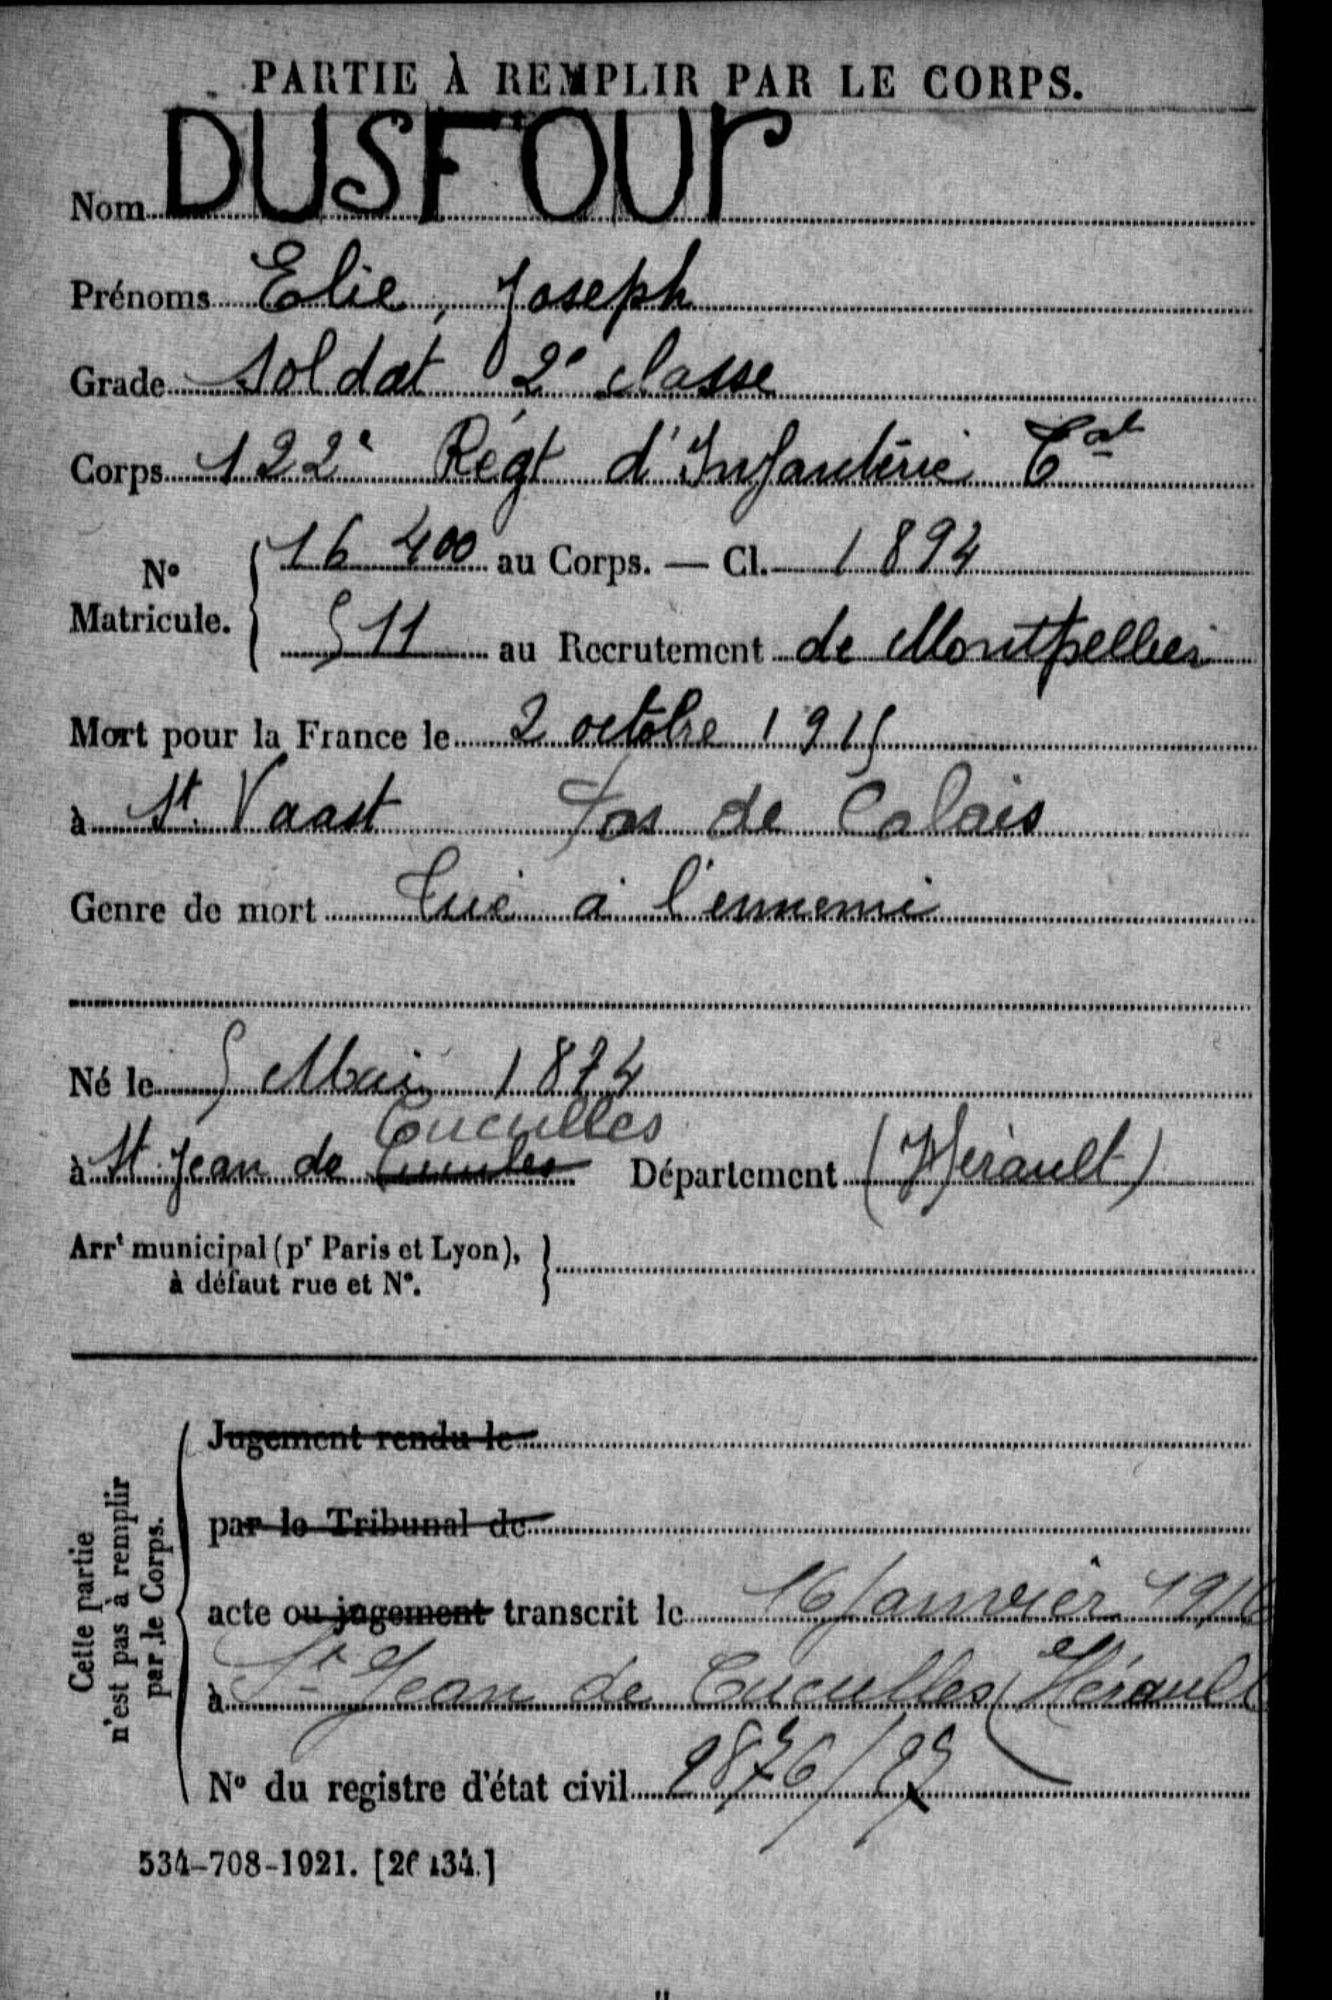 PARTIE À REMPLIR PAR LE CORPS.
Nom DUSFOUr
Prénoms Elie, Joseph
Grade Soldat 2e classe
Corps 122e Régt d'Infanterie Cal
No Matricule. { 16 400 au Corps. — Cl. 1894
511 au Recrutement de Montpellier
Mort pour la France le 2 octobre 1915
à St. Vaast Pas de Calais
Genre de mort Tué à l'ennemi
Né le 5 Mai 1874
Cuculles
à St Jean de Département (Hérault)
Arrt municipal (pr Paris et Lyon), }
à défaut rue et No.
Cette partie n'est pas à remplir par le Corps.
Jugement rendu le
par le Tribunal de
acte ou jugement transcrit le 16 janvier 1916
à St Jean de Cuculles (Hérault
No du registre d'état civil
534-708-1921. [26434.]